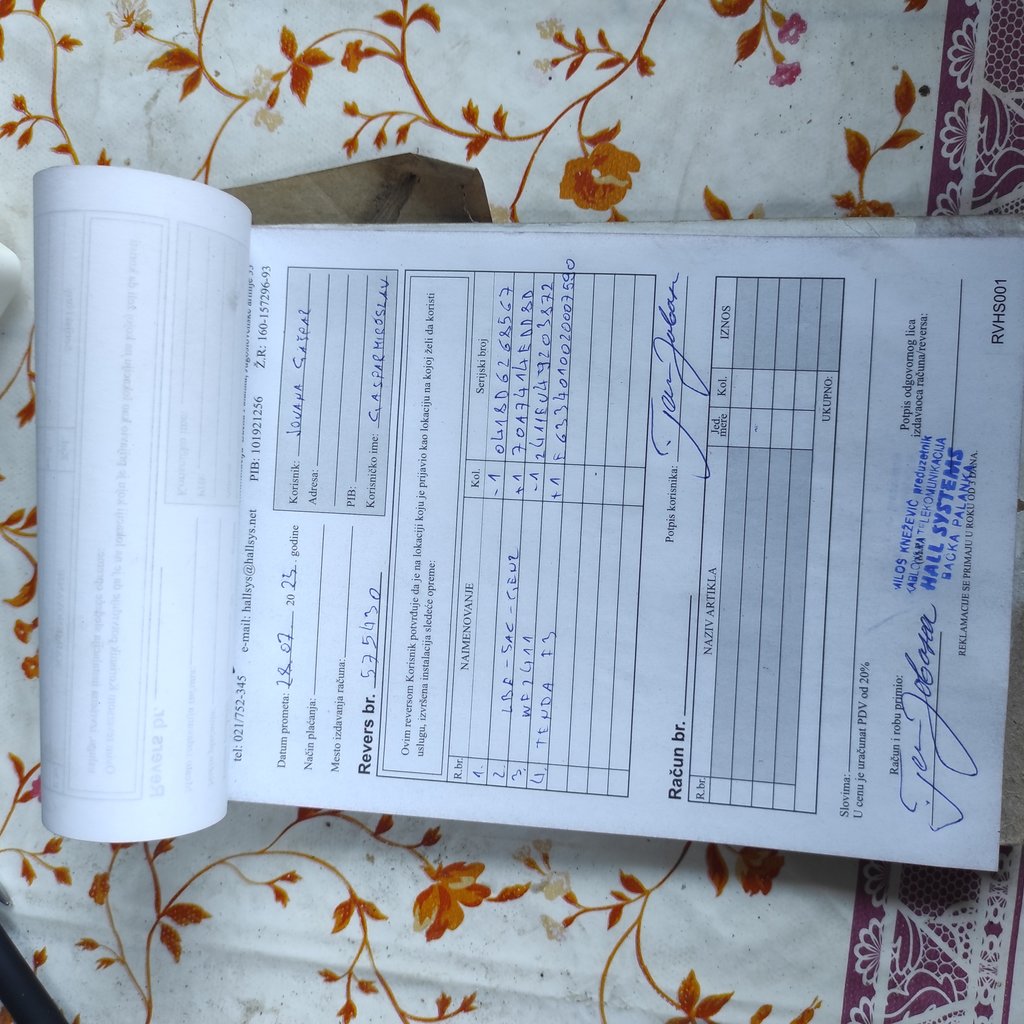 tel: 021/752-345 e-mail: hallsys@hallsys.net PIB: 101921256 Ž.R: 160-157296-93
Datum prometa: 28.07 2023. godine
Način plaćanja:
Mesto izdavanja računa:
Korisnik: JOVANA GAŠPAR
Adresa:
PIB:
Korisničko ime: GASPARMIROSLAV
Revers br. 575430
Ovim reversom Korisnik potvrđuje da je na lokaciji koju je prijavio kao lokaciju na kojoj želi da koristi
uslugu, izvršena instalacija sledeće opreme:
R.br. NAIMENOVANJE Kol. Serijski broj
1. -1 041BD6268567
2. LBE-5AC-GEN2 +1 7017414EDDBD
3. WF2411 -1 2411EU49203872
4. TENDA F3 +1 E6334010020007590
Potpis korisnika:
Račun br.
R.br. NAZIV ARTIKLA Jed. mere Kol. IZNOS
UKUPNO:
Slovima:
U cenu je uračunat PDV od 20%
Račun i robu primio:
Potpis odgovornog lica
izdavaoca računa/reversa:
MILOS KNEŽEVIĆ preduzetnik
KABLOVSKA TELEKOMUNIKACIJA
HALL SYSTEMS
BAČKA PALANKA
REKLAMACIJE SE PRIMAJU U ROKU OD 3 DANA.
RVHS001